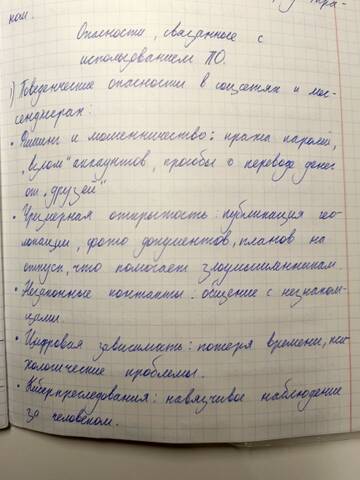 ном.
Опасности, связанные с
использованием ПО.
1) Поведенческие опасности в соцсетях и мес-
сенджерах:
• Фишинг и мошенничество: кража паролей,
„взлом" аккаунтов, просьбы о переводе денег
от „друзей"
• Чрезмерная открытость: публикация гео-
локации, фото документов, планов на
отпуск, что помогает злоумышленникам.
• Надёжные контакты: общение с незнаком-
цами.
• Цифровая зависимость: потеря времени, пси-
хологические проблемы.
• Киберпреследования: навязчивое наблюдение
за человеком.